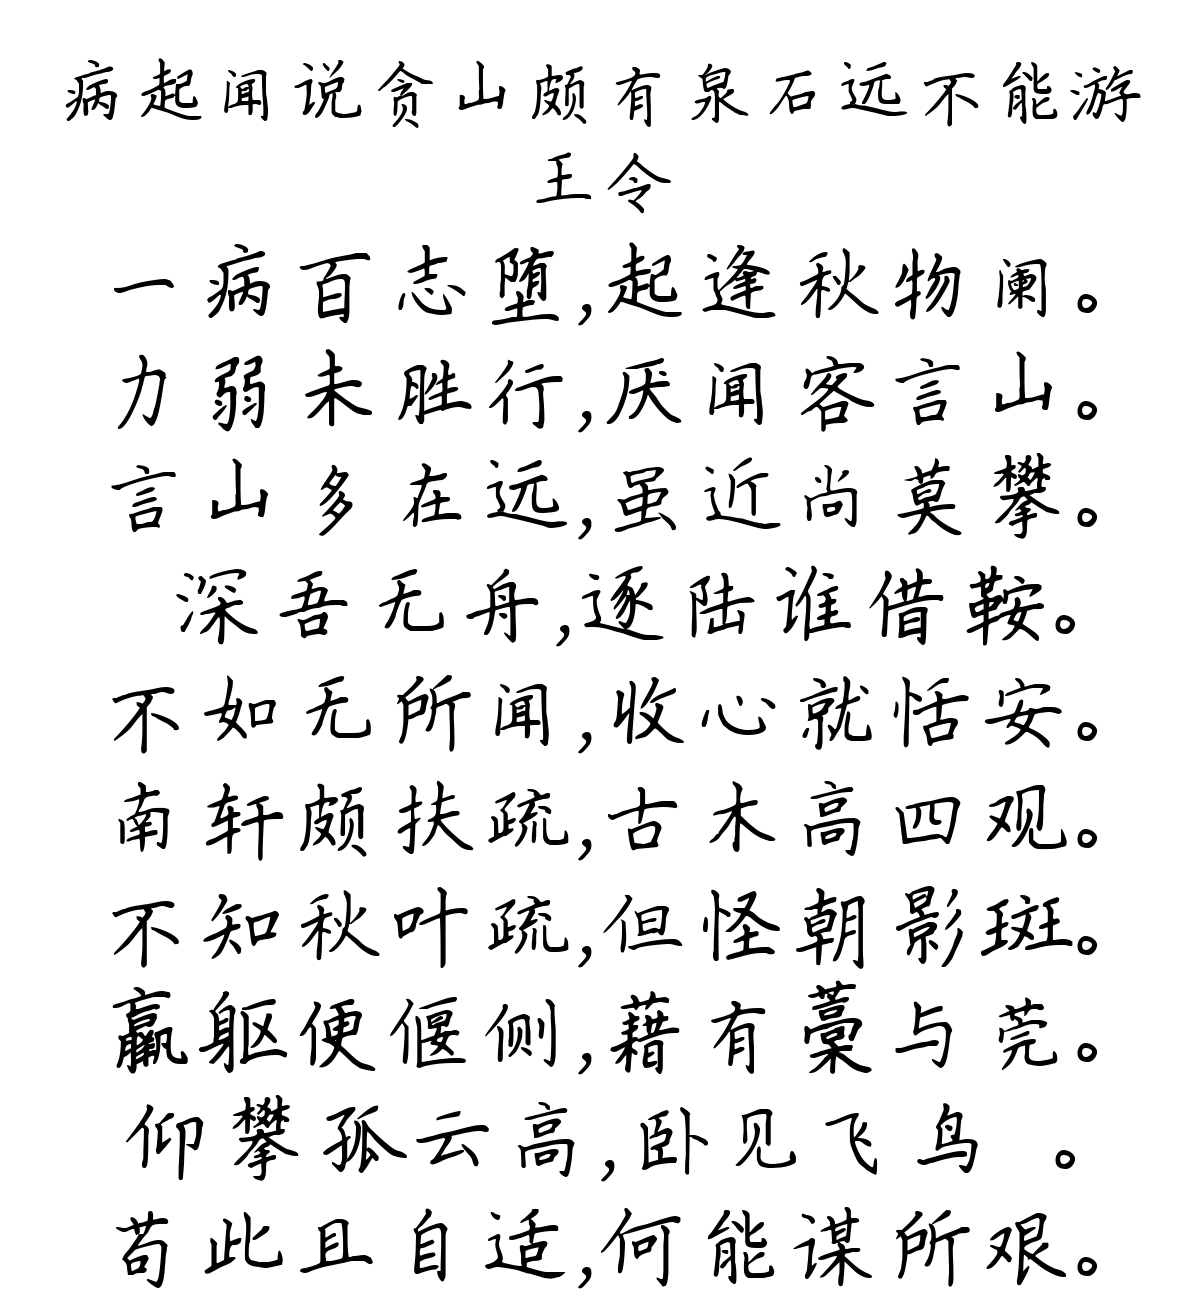 病起闻说贪山颇有泉石远不能游
王令
一病百志堕,起逢秋物阑。
力弱未胜行,厌闻客言山。
言山多在远,虽近尚莫攀。
深吾无舟,逐陆谁借鞍。
不如无所闻,收心就恬安。
南轩颇扶疏,古木高四观。
不知秋叶疏,但怪朝影斑。
赢躯便偃侧,藉有藁与莞。
仰攀孤云高,卧见飞鸟 。
苟此且自适,何能谋所艰。